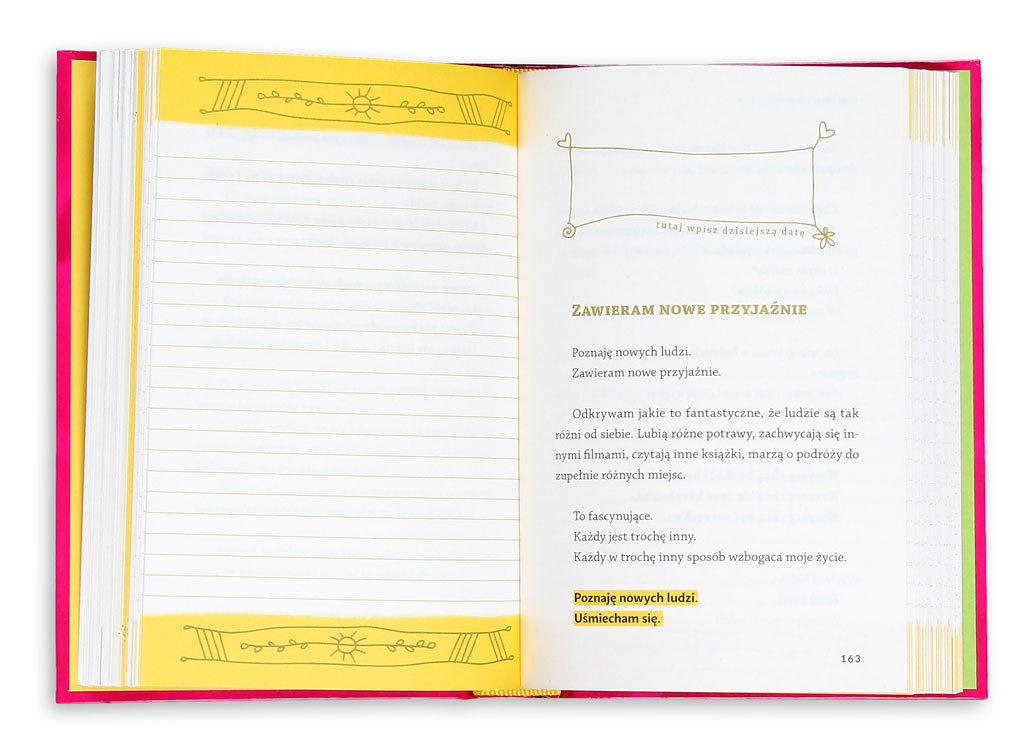 tutaj wpisz dzisiejszą datę
Zawieram nowe przyjaźnie
Poznaję nowych ludzi.
Zawieram nowe przyjaźnie.
Odkrywam jakie to fantastyczne, że ludzie są tak
różni od siebie. Lubią różne potrawy, zachwycają się in-
nymi filmami, czytają inne książki, marzą o podróży do
zupełnie różnych miejsc.
To fascynujące.
Każdy jest trochę inny.
Każdy w trochę inny sposób wzbogaca moje życie.
Poznaję nowych ludzi.
Uśmiecham się.
163